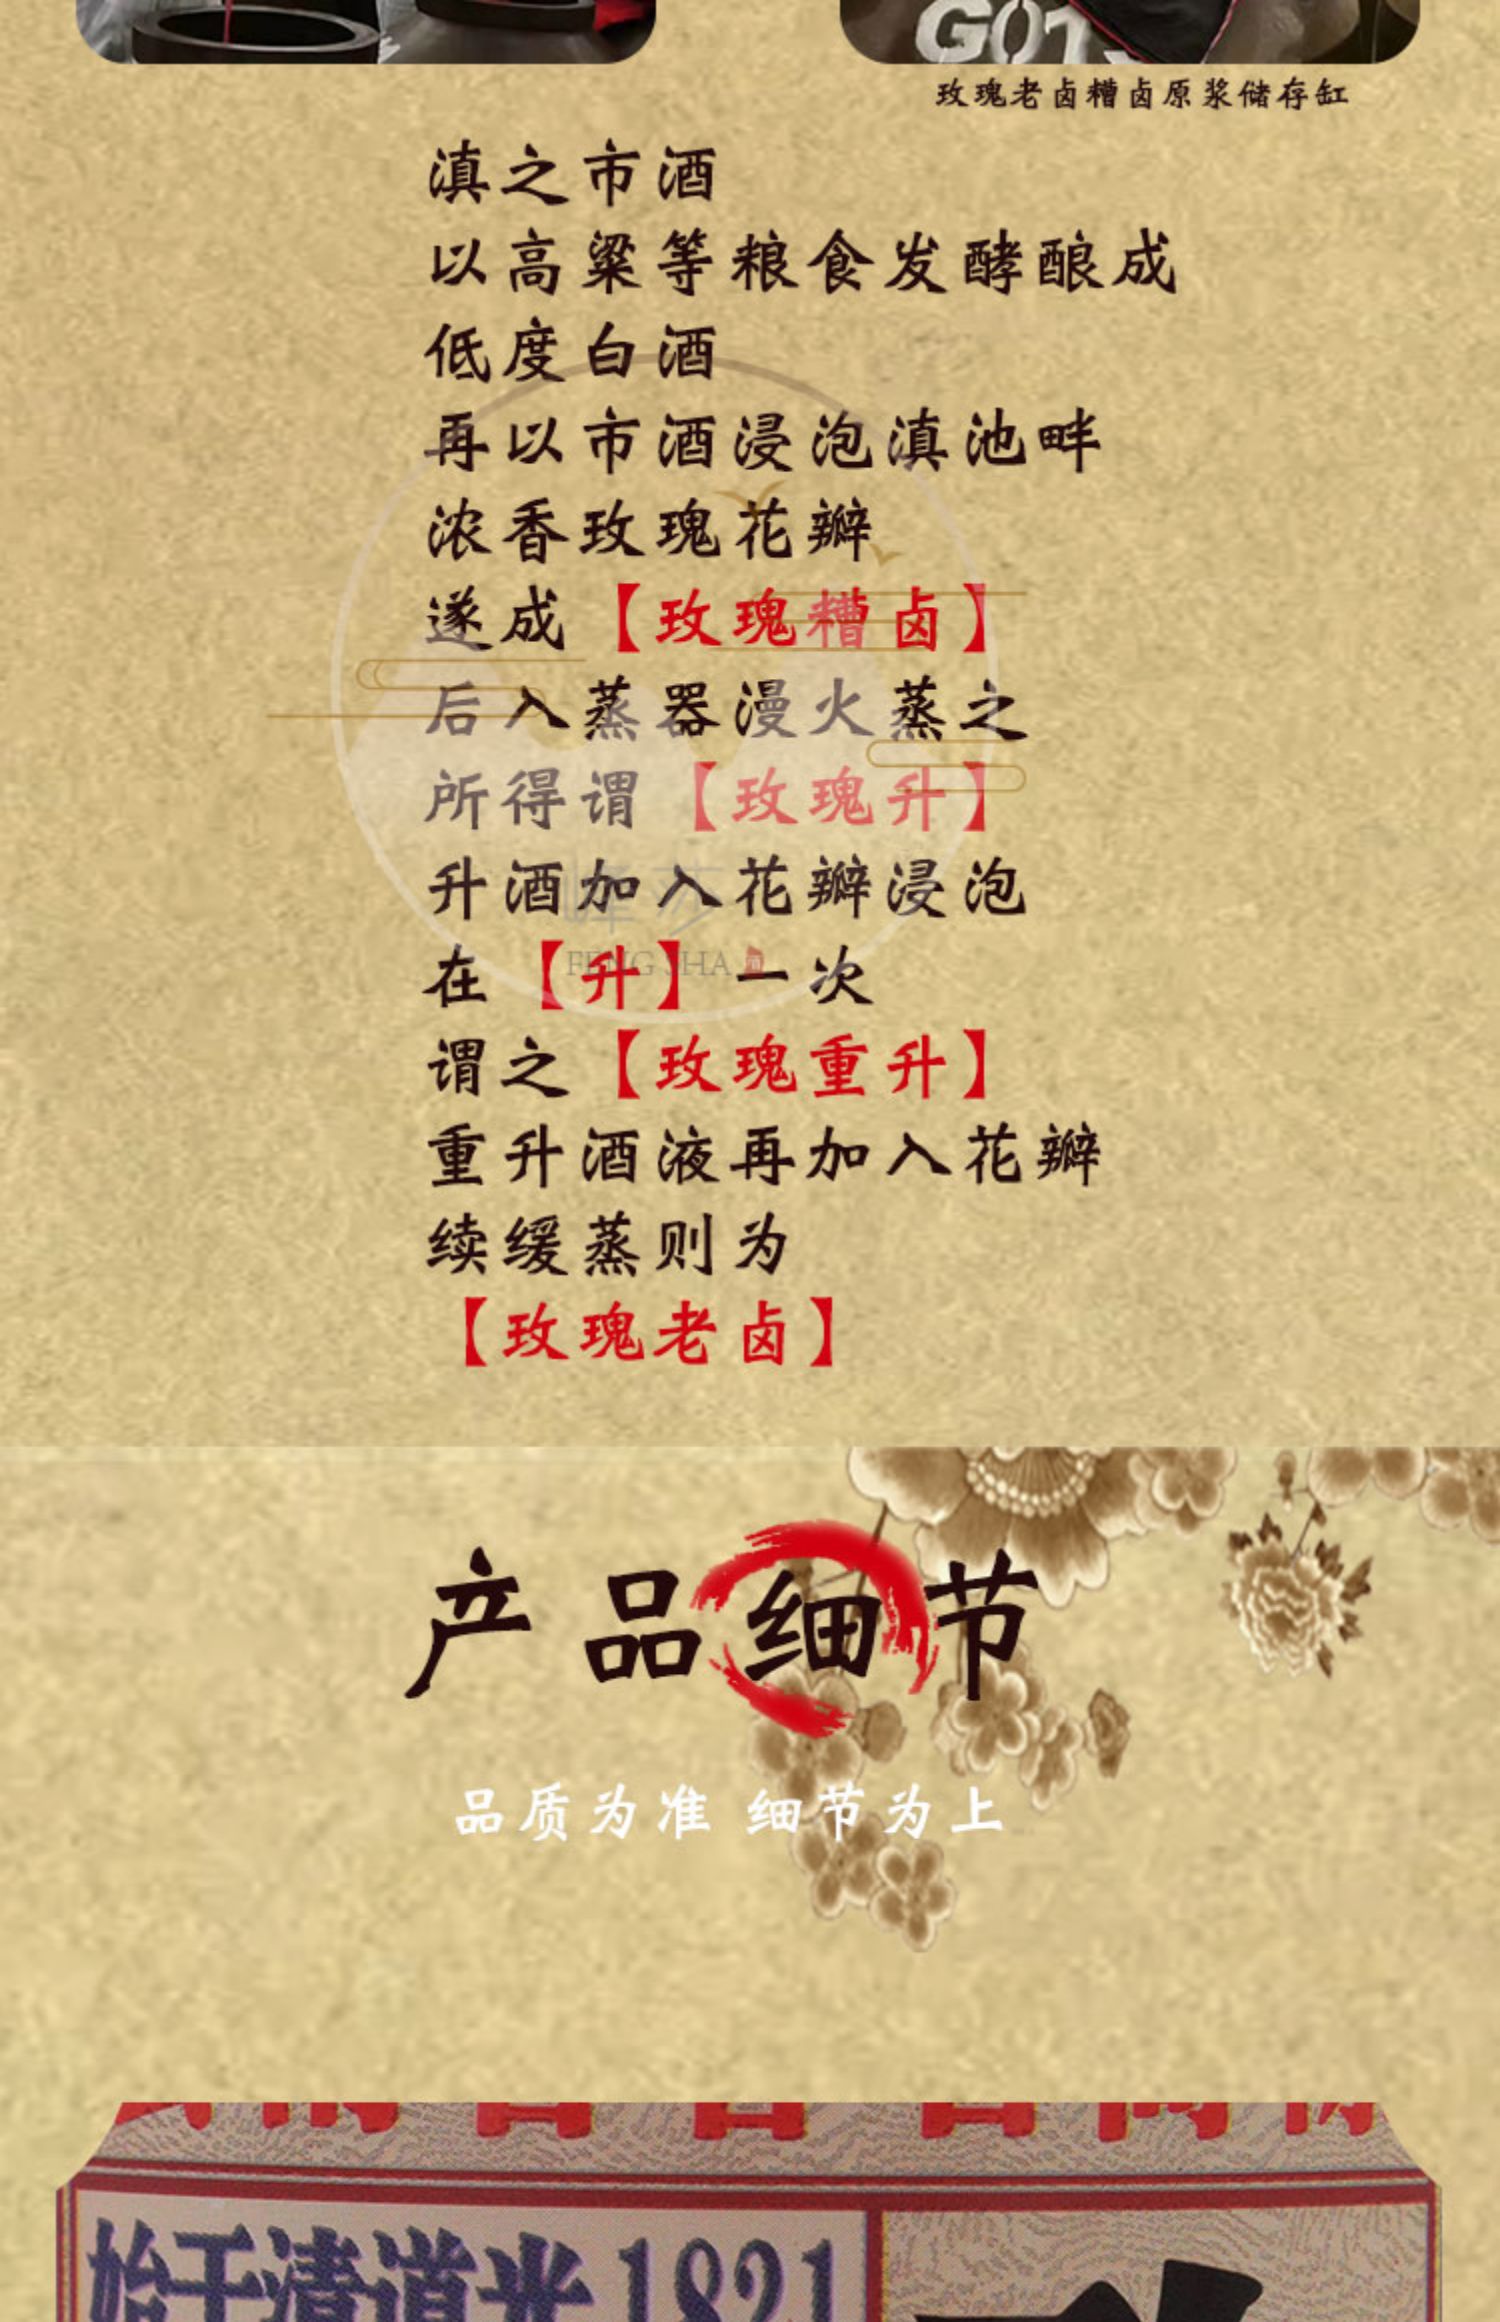 GOT
玫瑰老卤糟卤原浆储存缸
滇之市酒
以高粱等粮食发酵酿成
低度白酒
再以市酒浸泡滇池畔
浓香玫瑰花瓣
遂成【玫瑰糟卤】
后入蒸器漫火蒸之
所得谓【玫瑰升】
升酒加入花瓣浸泡
FENG SHA
在【升】一次
谓之【玫瑰重升】
重升酒液再加入花瓣
续缓蒸则为
【玫瑰老卤】
产品细节
品质为准 细节为上
始于清道光1821